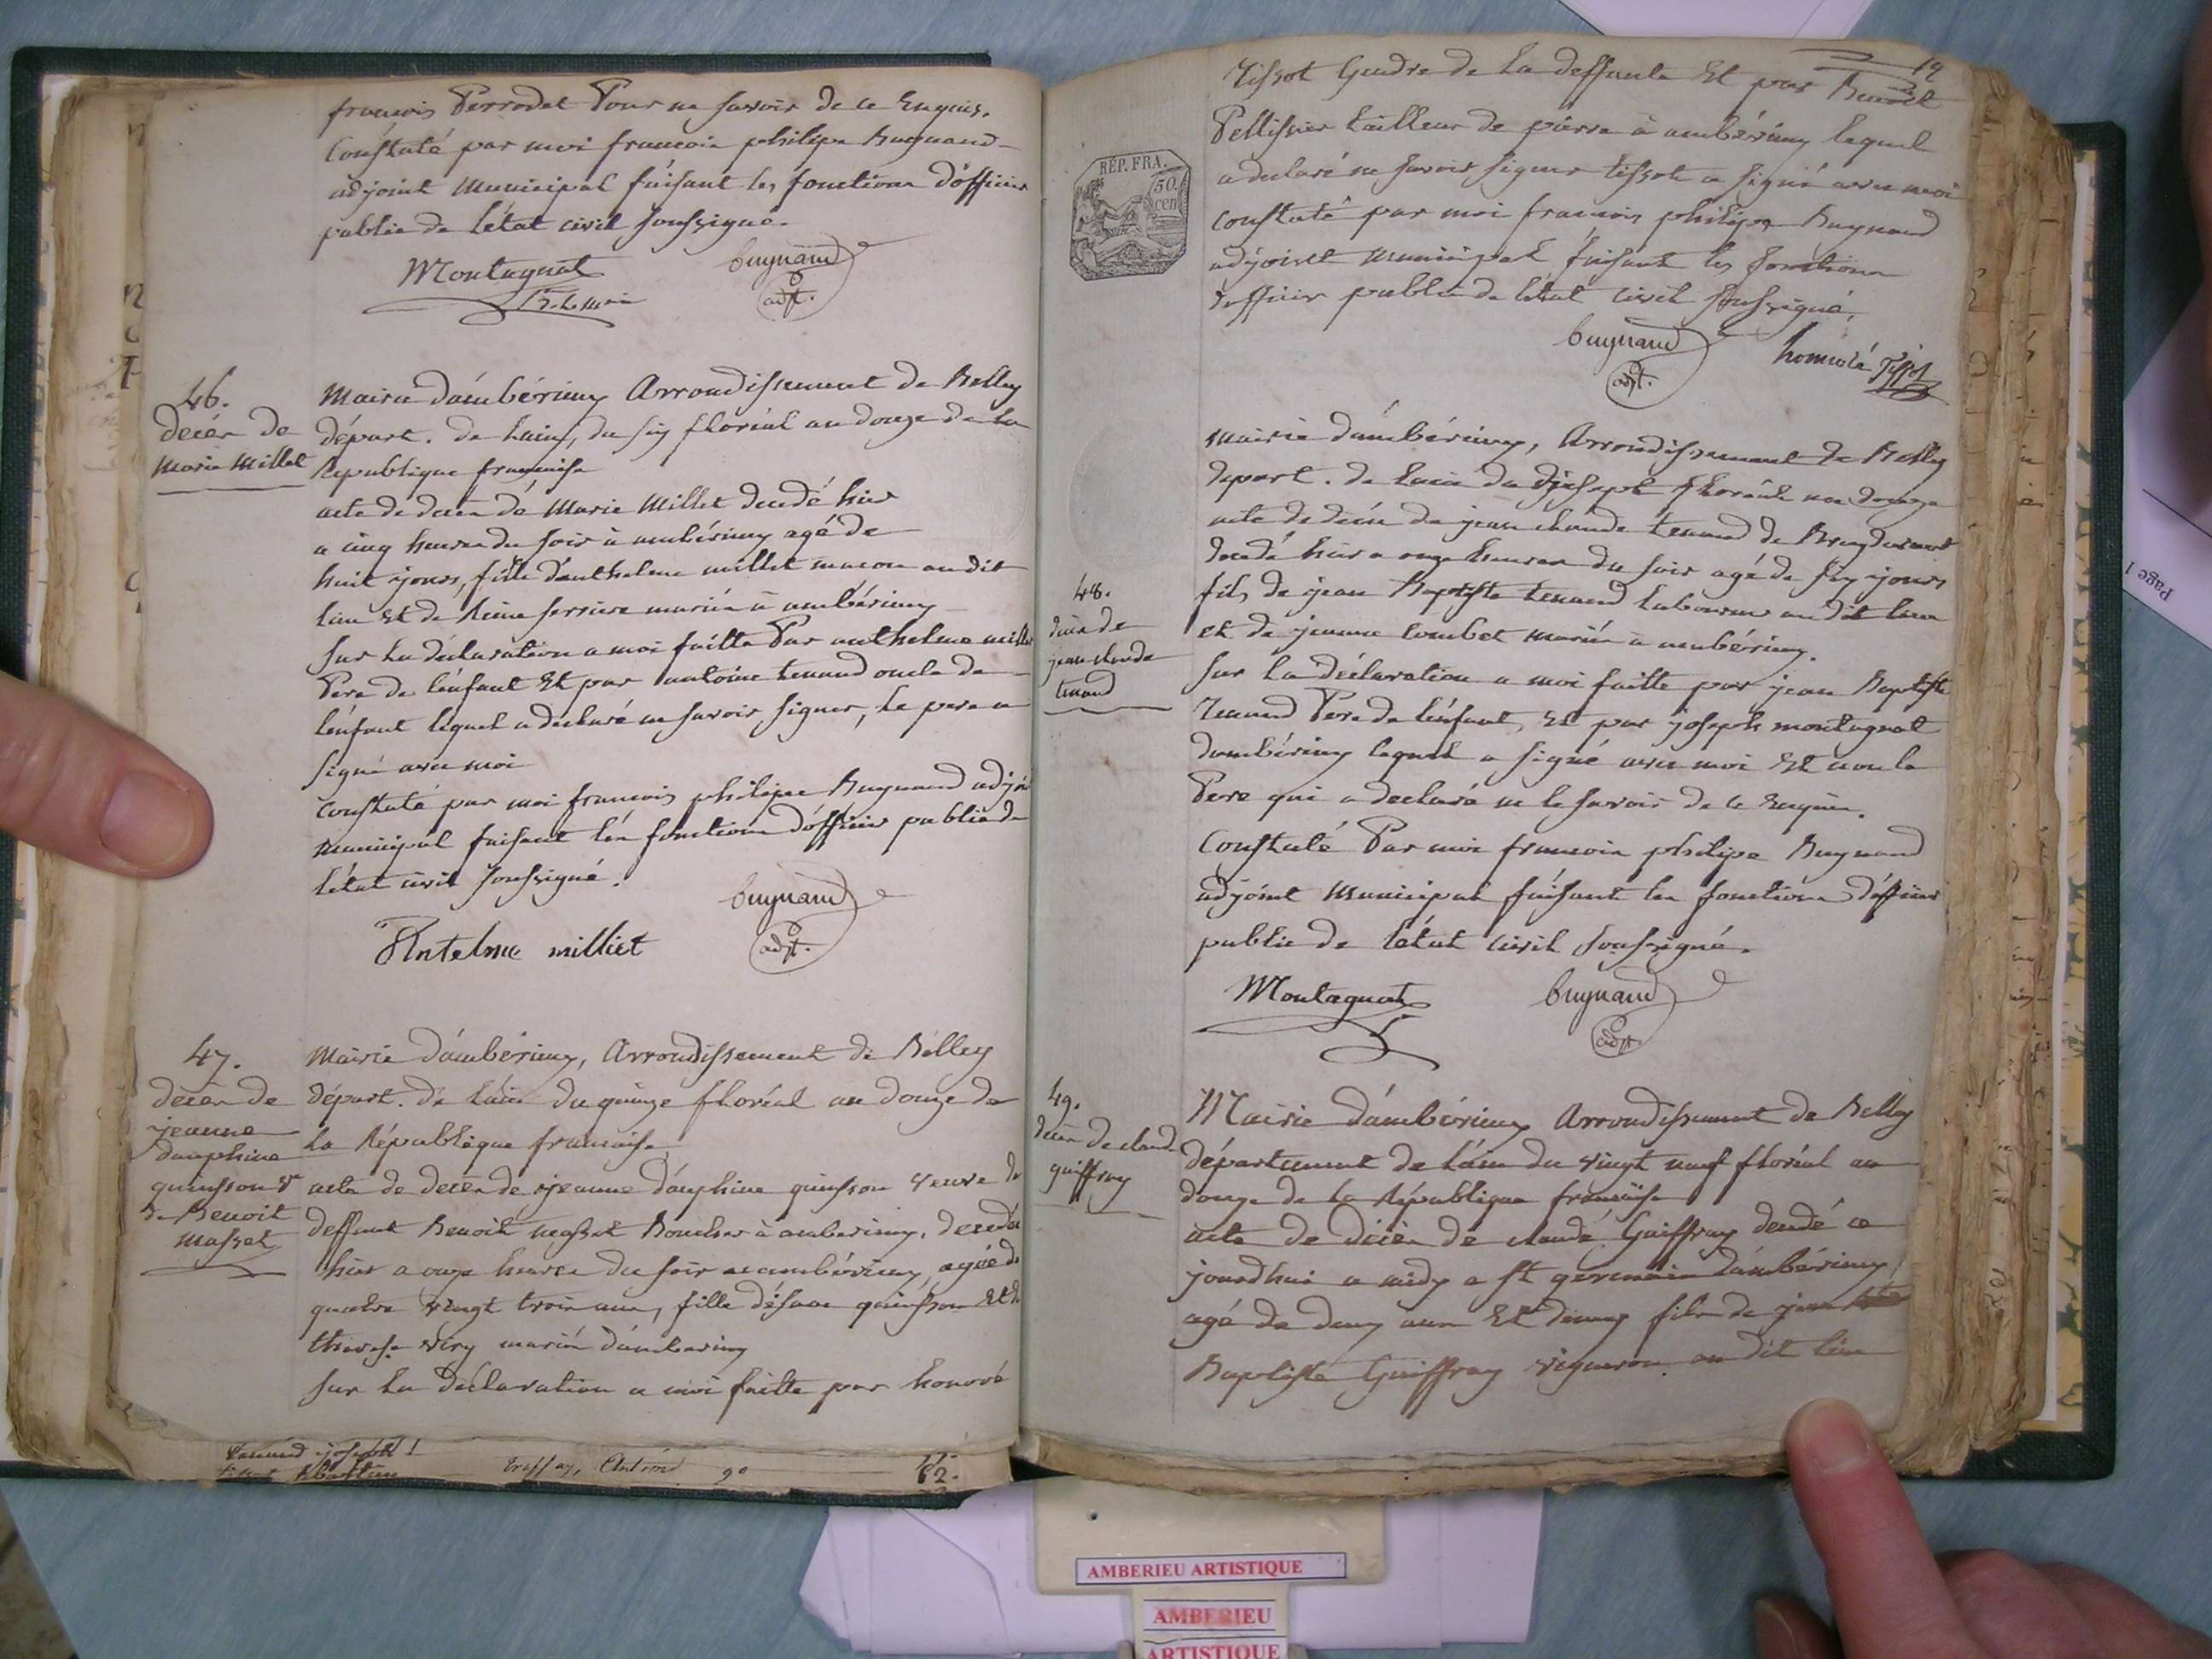 françois Perrodet Pour ne savoir de ce Enquis.
Constaté par moi francois philipe Bugnand
adjoint municipal faisant les fonctions dofficier
public de létat civil soussigné.
Montagnat
bugnand
adjt.
46.
décès de
Marie Millet
Mairie dambérieux Arrondissement de Belley
départ. de Lain, du six floréal an douze de la
République française
acte de décès de Marie Millet decedé hier
a cinq heures du soir à ambérieux agé de
huit jours, fille danthelme millet macon au dit
lieu Et de Reine ferriere mariés à ambérieux
sur la déclaration a moi faitte Par anthelme millet
Pere de lénfant Et par antoine tenand oncle de
lénfant lequel a declaré ne savoir signer, le pere a
signé avec moi
Constaté par moi francois philipe Bugnand adjoi
municipal faisant les fonctions dofficier public de
létat civil soussigné.
bugnand
adjt.
Antelme milliet
47.
décès de
jeanne
dauphine
quinsson Ve
de Benoit
massat
Mairie dambérieux, Arrondissement de Belley
départ. de Lain du quinze floréal an douze de
la République francaise
acte de deces de jeanne dauphine quinsson veuve de
deffunt Benoit massat Boucher à amberieux, decedée
hier a onze heures du soir a ambérieux, agée de
quatre vingt trois ans, fille de quinsson Et de
therese viry mariés damberieux
sur la declaration a moi faitte par honoré
tenand joseph
Antoine 90
62.
19
Tissot Gendre de la deffunte Et par Benoit
Pellissier tailleur de pierre à ambérieux lequel
a declaré ne savoir signer tissot a signé avec moi
Constaté par moi francois philipe Bugnand
adjoint municipal faisant les fonctions
dofficier public de létat civil soussigné.
RÉP. FRA.
50.
cen
bugnand
adjt.
honoré Tissot
Mairie dambérieux, Arrondissement de Belley
depart. de Lain du dixsept floréal an douze
48.
décès de
jean claude
tenand
acte de décès de jean claude tenand de
decedé hier a onze heures du soir agé de six jours
fils de jean Baptiste tenand laboureur au dit lieu
et de jeanne combet mariés a ambérieux.
sur la déclaration a moi faitte par jean Baptiste
Tenand Pere de lénfant, Et par joseph montagnat
dambérieux lequel a signé avec moi Et non le
Pere qui a declaré ne le savoir de ce Enquis.
Constaté Par moi francois philipe Bugnand
adjoint municipal faisant les fonctions dofficier
public de létat civil soussigné.
Montagnat
bugnand
adjt.
49.
décès de claude
guiffray
Mairie dambérieux Arrondissement de Belley
département de Lain du vingt neuf floréal an
douze de la République francaise
acte de décès de claude Guiffray decedé ce
jourdhui a midy a st germain dambérieux,
agé de deux ans Et demy fils de jean
Baptiste Guiffray vigneron au dit lieu
Page 1
AMBERIEU ARTISTIQUE
AMBERIEU
ARTISTIQUE